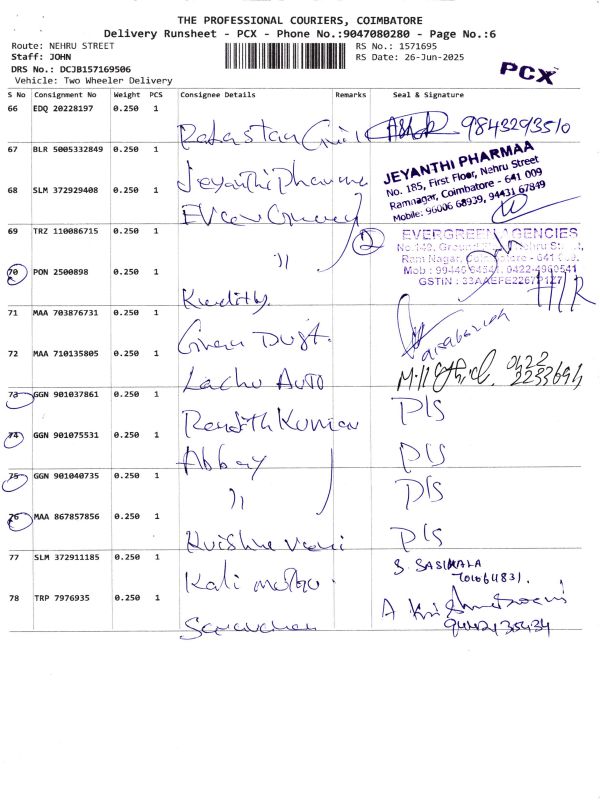 THE PROFESSIONAL COURIERS, COIMBATORE
Delivery Runsheet - PCX - Phone No.:9047080280 - Page No.:6
Route: NEHRU STREET
RS No.: 1571695
Staff: JOHN
RS Date: 26-Jun-2025
DRS No.: DCJB157169506
PCX
Vehicle: Two Wheeler Delivery
S No Consignment No Weight PCS Consignee Details Remarks Seal & Signature
66 EDQ 20228197 0.250 1
9843293510
67 BLR 5005332849 0.250 1
Jeyanthi Pharma
JEYANTHI PHARMAA
No. 185, First Floor, Nehru Street
Ramnagar, Coimbatore - 641 009
Mobile: 96006 68939, 94431 67849
68 SLM 372929408 0.250 1
69 TRZ 110086715 0.250 1
2
EVERGREEN AGENCIES
No.149, Ground Nehru Street,
Ram Nagar, Coimbatore - 641
Mob : 99446 64541, 0422-4960541
GSTIN : 33AAEFE2267P1Z7
"
70 PON 2500898 0.250 1
H/R
71 MAA 703876731 0.250 1
72 MAA 710135805 0.250 1
Lachu Auto
0422
2233694
73 GGN 901037861 0.250 1
P/S
74 GGN 901075531 0.250 1
Abbay
P/S
75 GGN 901040735 0.250 1
"
P/S
76 MAA 867857856 0.250 1
Krishna veni
P/S
77 SLM 372911185 0.250 1
S. SASIKALA
Kali motors
78 TRP 7976935 0.250 1
A Krishnaswami
9442135434
Saravanan